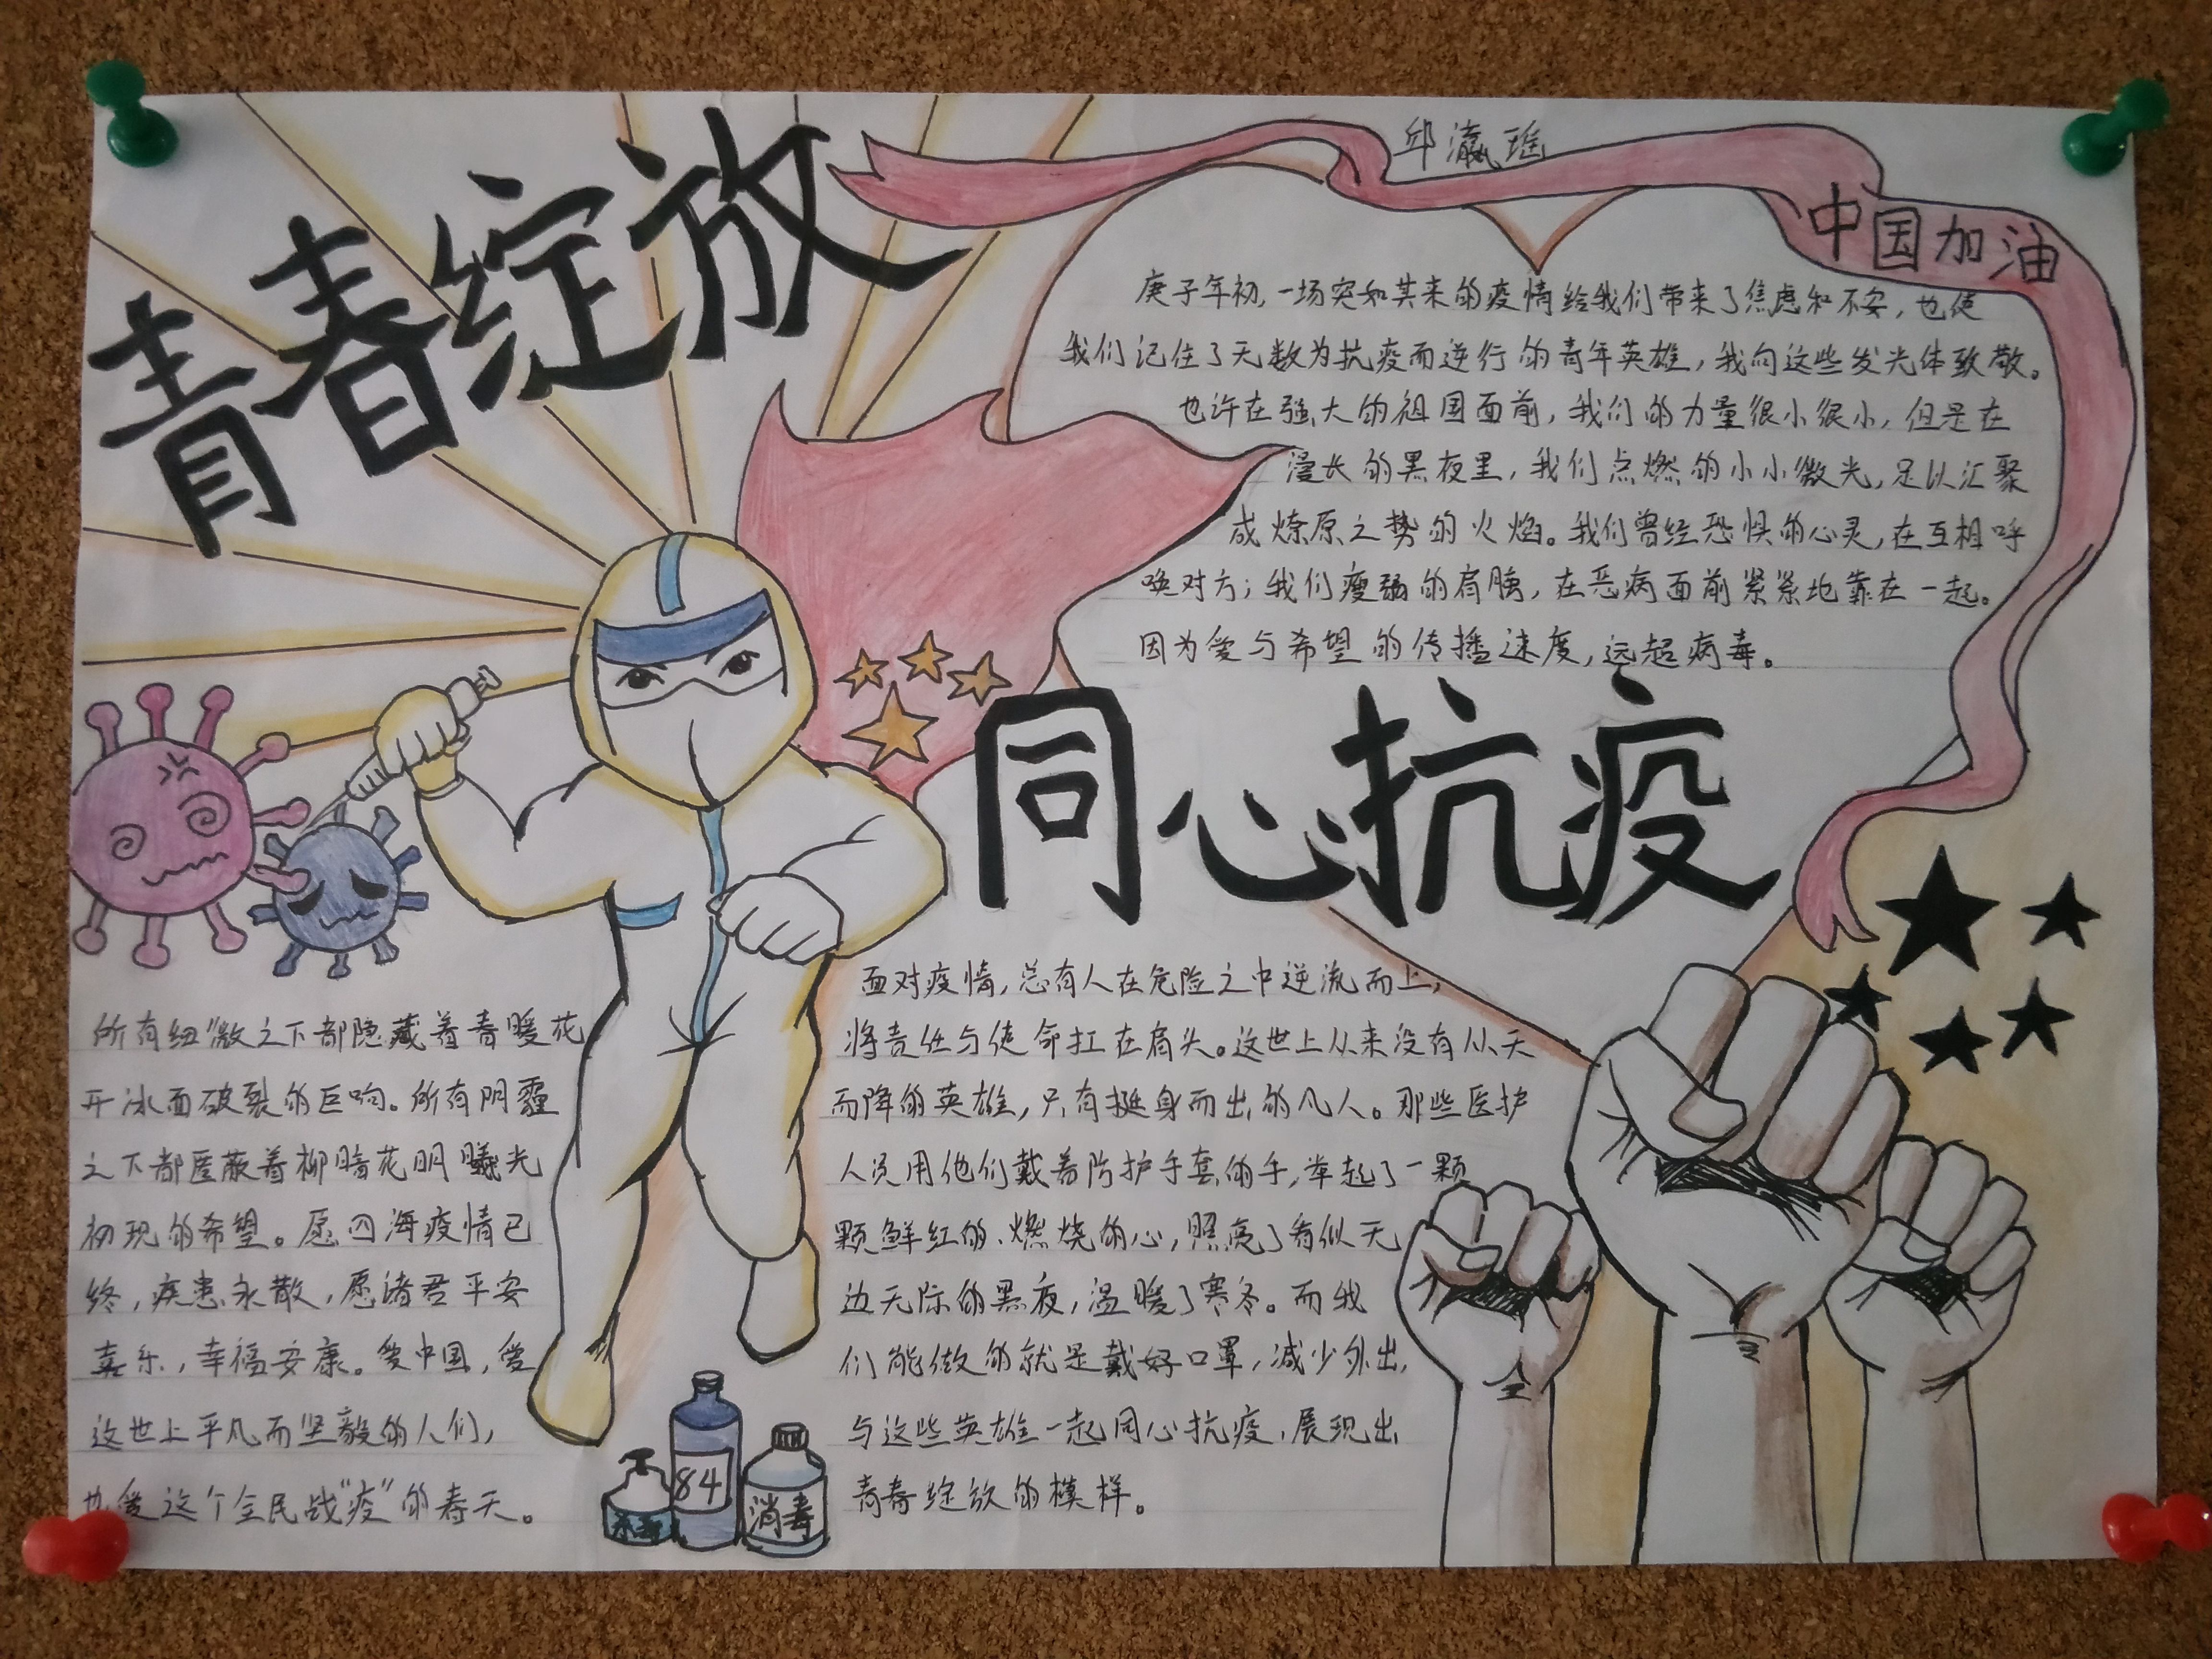 青春绽放
邱瀛瑶
中国加油
庚子年初,一场突如其来的疫情给我们带来了焦虑和不安,也使
我们记住了无数为抗疫而逆行的青年英雄,我向这些发光体致敬。
也许在强大的祖国面前,我们的力量很小很小,但是在
漫长的黑夜里,我们点燃的小小微光,足以汇聚
成燎原之势的火焰。我们曾经恐惧的心灵,在互相呼
唤对方;我们瘦弱的肩膀,在恶病面前紧紧地靠在一起。
因为爱与希望的传播速度,远超病毒。
同心抗疫
面对疫情,总有人在危险之中逆流而上,
将责任与使命扛在肩头。这世上从来没有从天
而降的英雄,只有挺身而出的凡人。那些医护
人员用他们戴着防护手套的手,举起了一颗
颗鲜红的、燃烧的心,照亮了看似无
边无际的黑夜,温暖了寒冬。而我
们能做的就是戴好口罩,减少外出,
与这些英雄一起同心抗疫,展现出
青春绽放的模样。
所有细微之下都隐藏着春暖花
开冰面破裂的巨响。所有阴霾
之下都匿蔽着柳暗花明曦光
初现的希望。愿四海疫情已
终,疾患永散,愿诸君平安
喜乐,幸福安康。爱中国,爱
这世上平凡而坚毅的人们,
也爱这个全民战“疫”的春天。
84
消毒